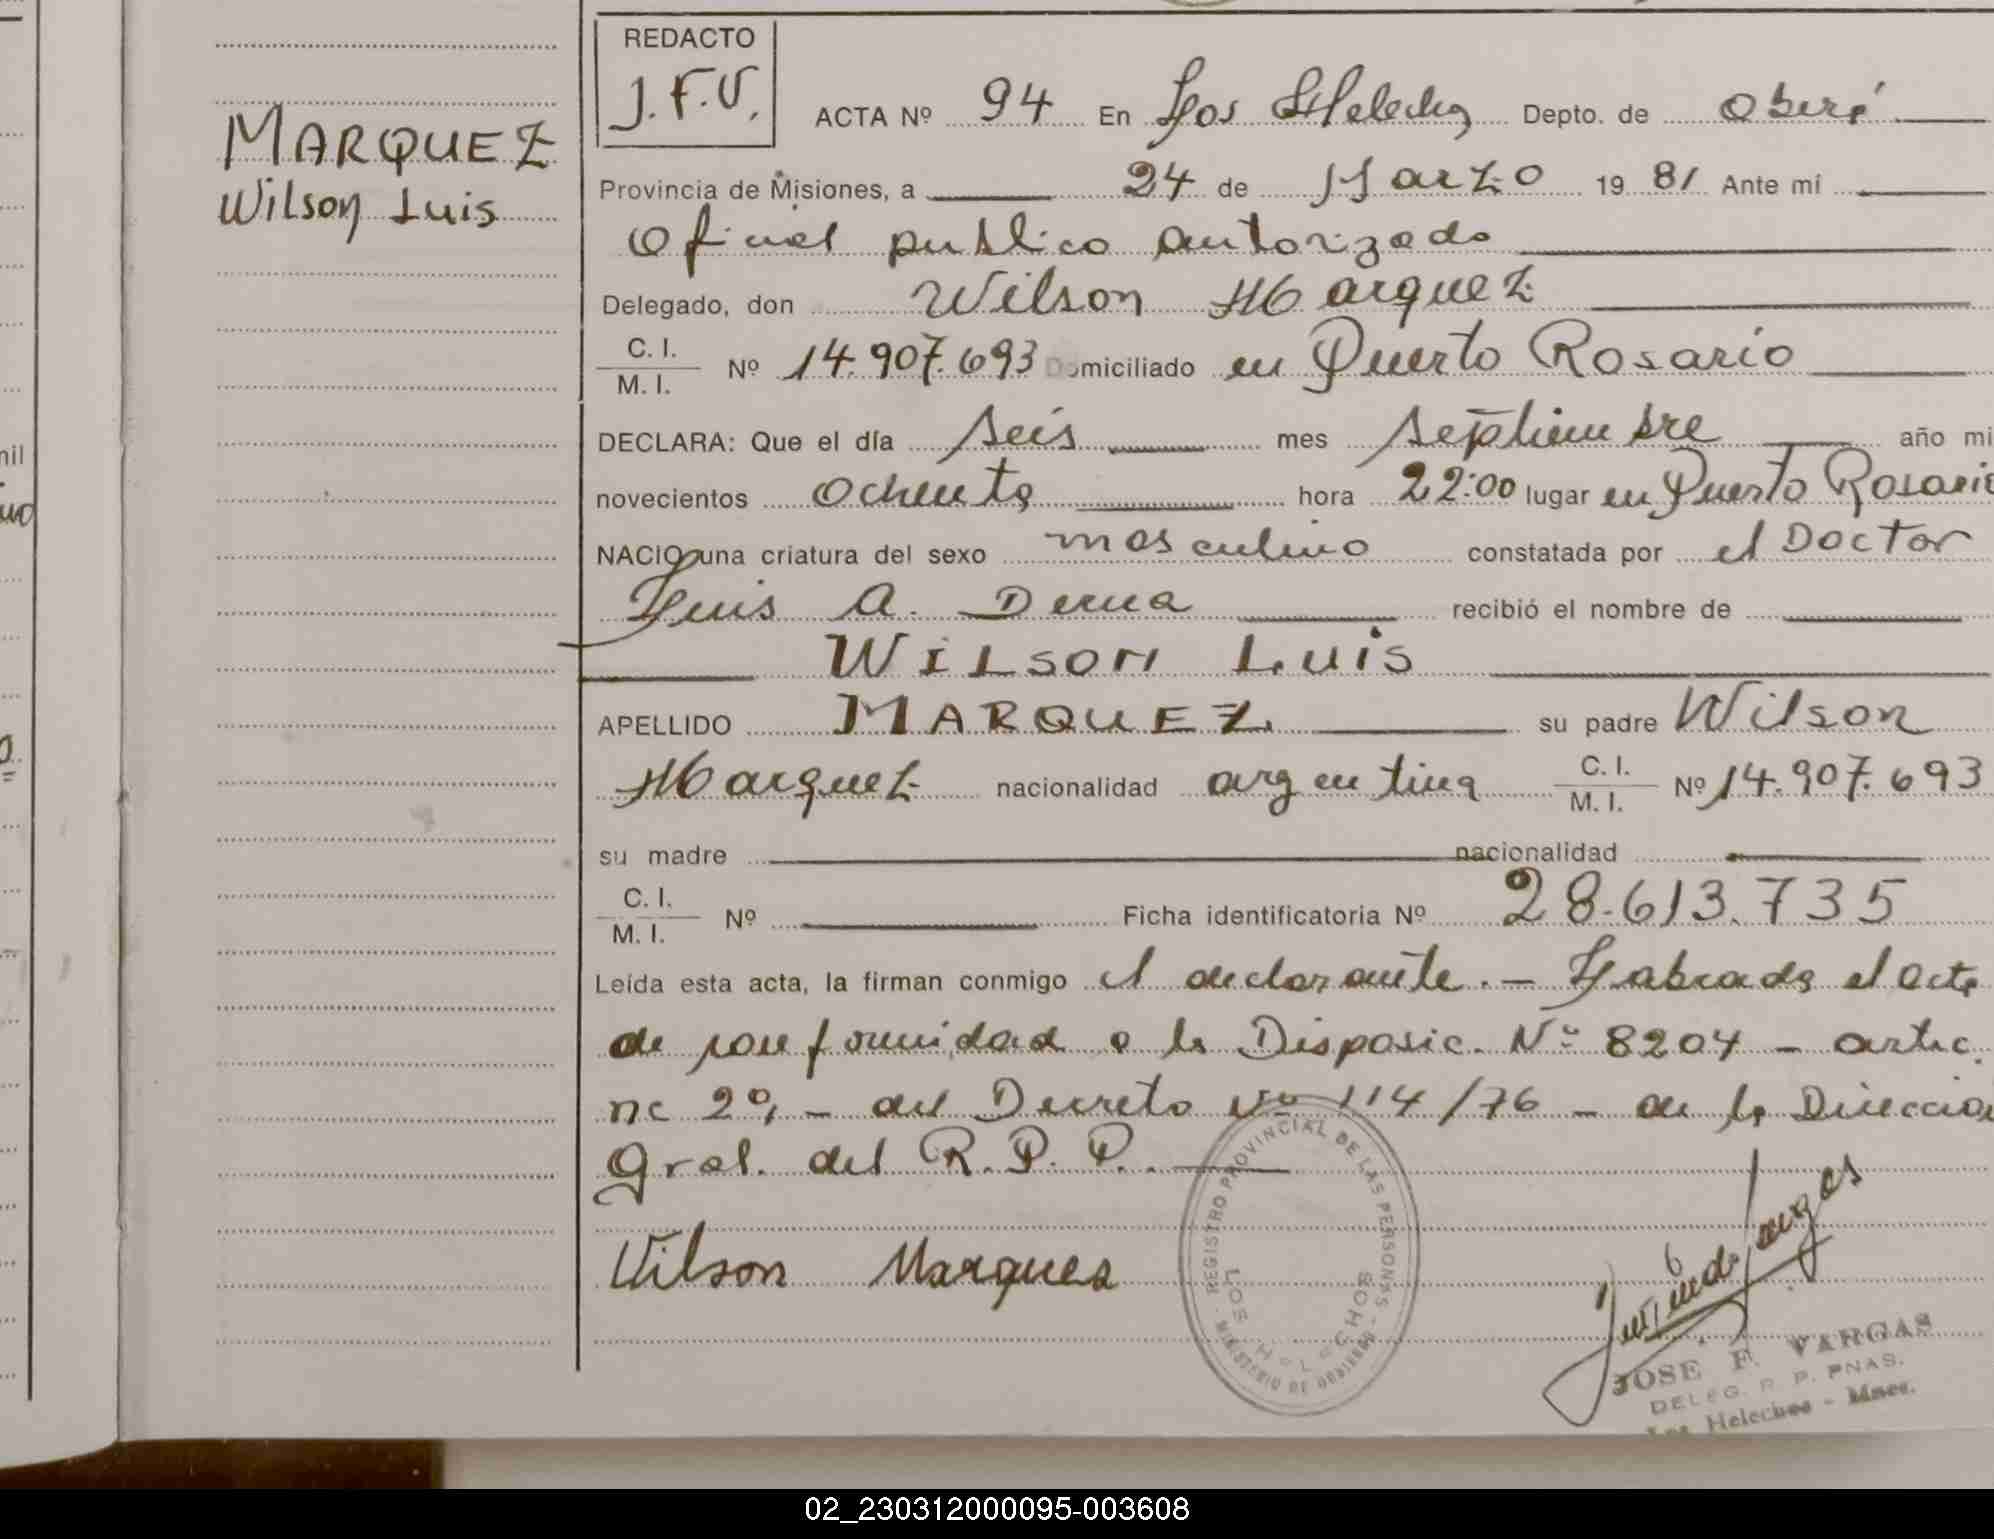 REDACTO
J.F.V.
MARQUEZ
Wilson Luis
ACTA Nº 94 En Los Helechos Depto. de Oberá
Provincia de Misiones, a 24 de Marzo 19 81 Ante mí
Oficial publico autorizado
Delegado, don Wilson Marquez
C. I.
M. I. Nº 14.907.693 Domiciliado en Puerto Rosario
DECLARA: Que el día seis mes septiembre año mi
novecientos ochenta hora 22:00 lugar en Puerto Rosario
NACIO una criatura del sexo masculino constatada por el Doctor
Luis A. Derna recibió el nombre de
WILSON LUIS
APELLIDO MARQUEZ su padre Wilson
Marquez nacionalidad argentina C. I.
M. I. Nº 14.907.693
su madre nacionalidad
C. I.
M. I. Nº Ficha identificatoria Nº 28.613.735
Leída esta acta, la firman conmigo el declarante.- Labrada el acta
de conformidad a la Disposic. Nº 8204 - artic.
nc 2º, - del Decreto Nº 114/76 - de la Direccion
Gral. del R.P.P.
Wilson Marques
REGISTRO PROVINCIAL DE LAS PERSONAS - MINISTERIO DE GOBIERNO -
LOS HELECHOS
JOSE F. VARGAS
DELEG. R. P. PNAS.
Los Helechos - Mnes.
02_230312000095-003608